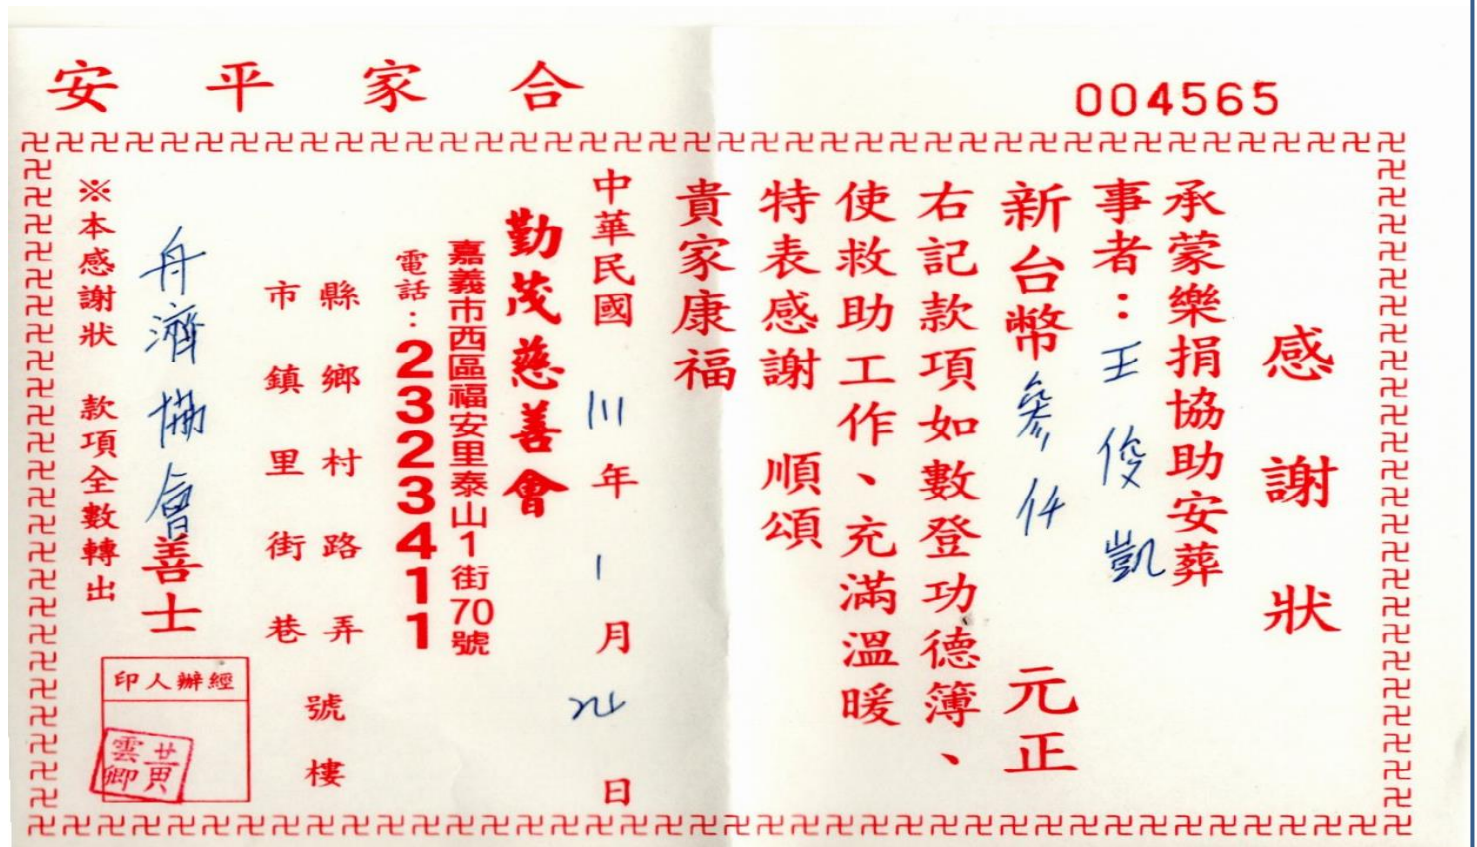 004565
合家平安
感謝狀
承蒙樂捐協助安葬
事者：王俊凱
新台幣參仟元正
右記款項如數登功德簿、
使救助工作、充滿溫暖
特表感謝 順頌
貴家康福
中華民國 111 年 1 月 日
勤茂慈善會
嘉義市西區福安里泰山1街70號
電話：2323411
縣鄉村路弄號
市鎮里街巷樓
舟濟協會善士
※本感謝狀 款項全數轉出
經辦人印
黃雲卿